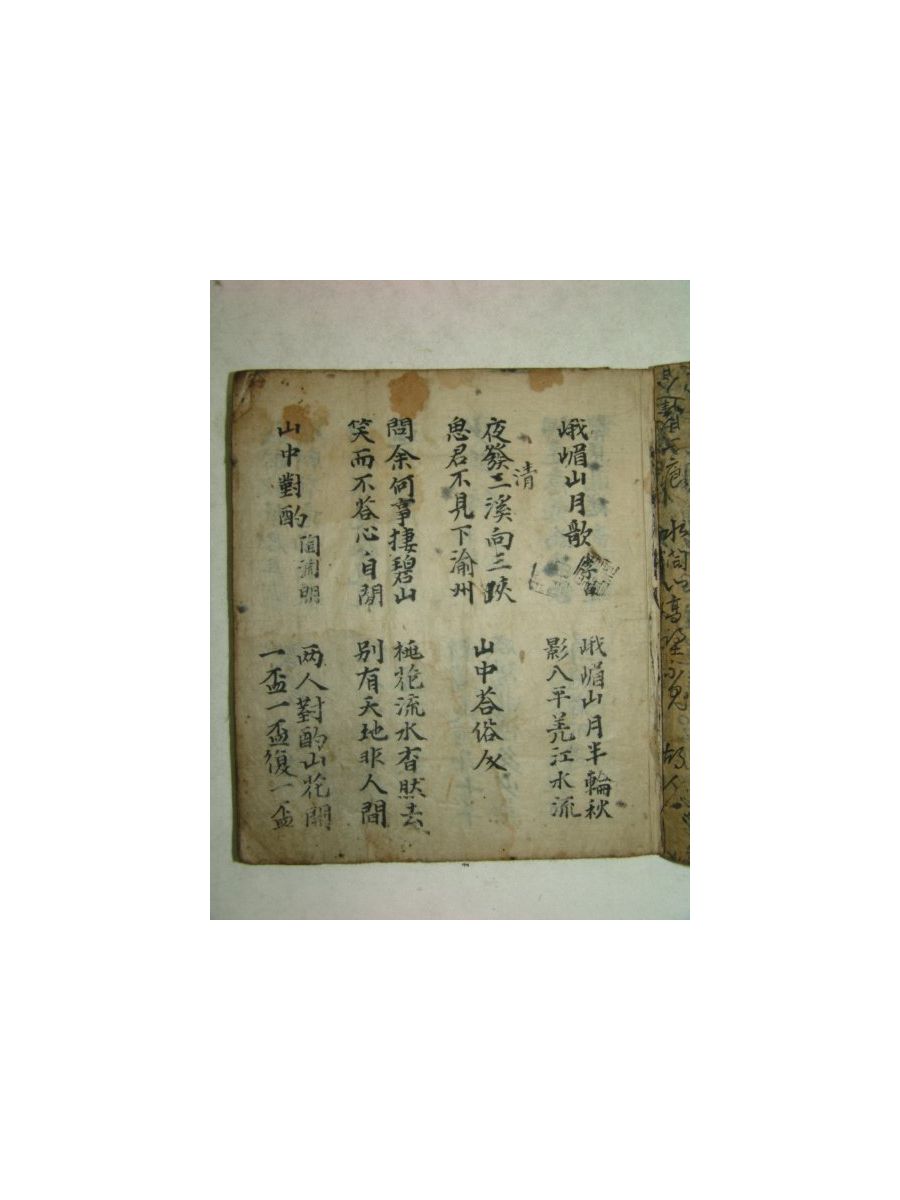 峨嵋山月歌
峨嵋山月半輪秋
影入平羌江水流
清
夜發三溪向三陝
思君不見下渝州
山中答俗人
問余何事捿碧山
笑而不答心自閒
桃花流水杳然去
別有天地非人間
山中對酌
两人對酌山花開
一盃一盃復一盃